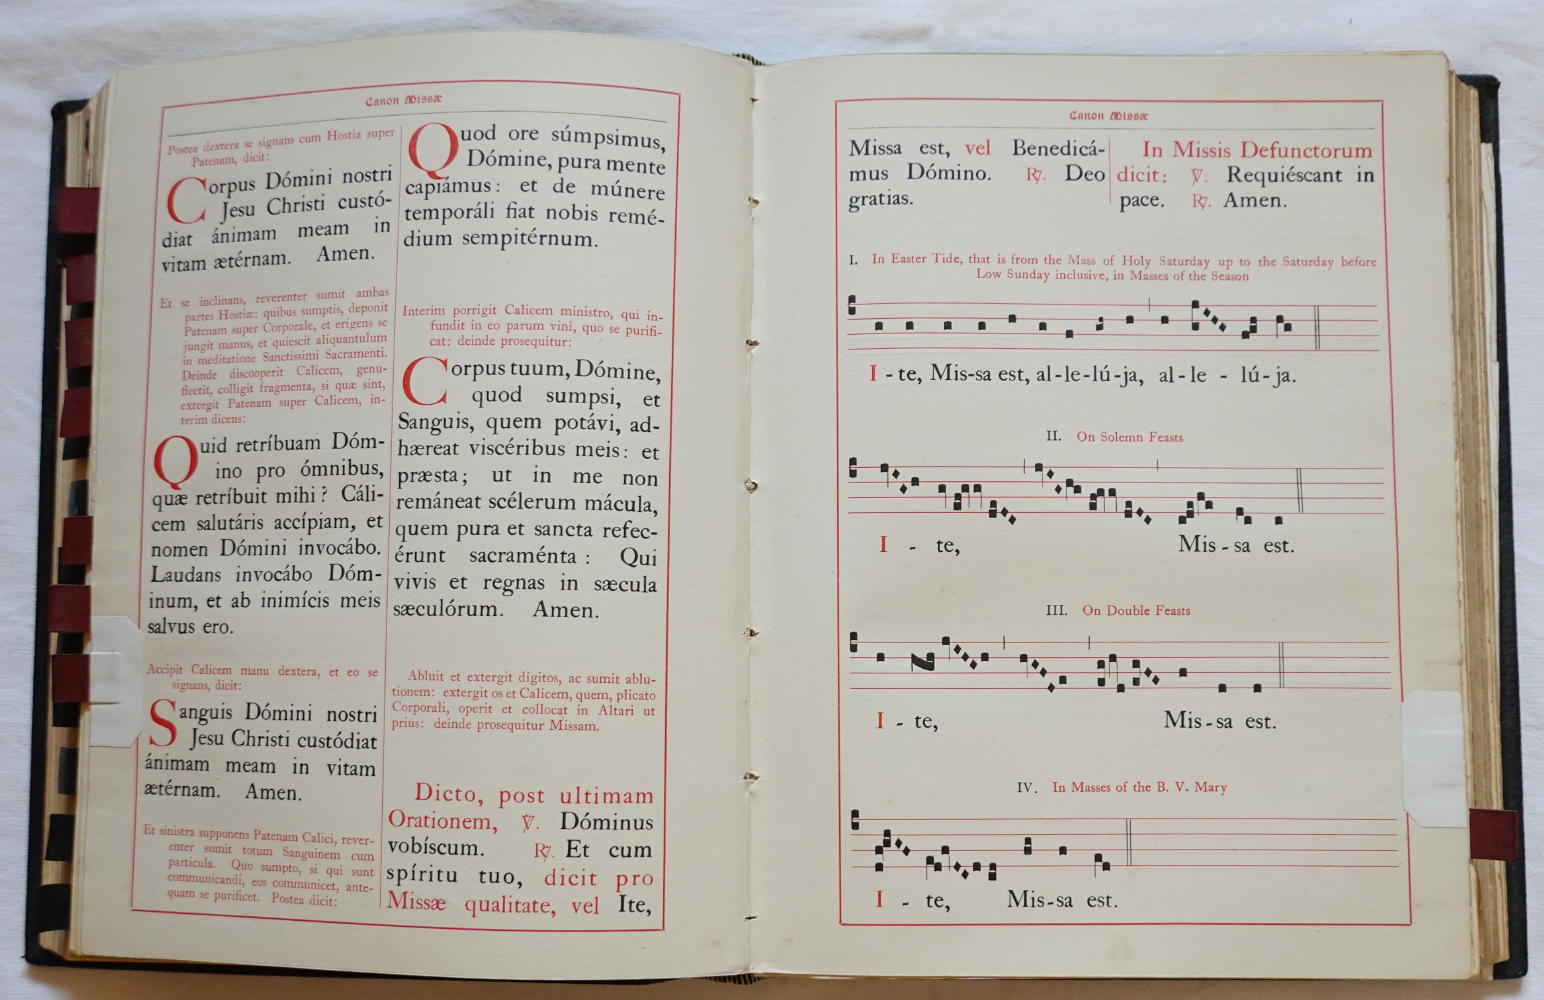 Canon Missæ
Postea dextera se signans cum Hostia super
Patenam, dicit:
Corpus Dómini nostri
Jesu Christi custó-
diat ánimam meam in
vitam ætérnam. Amen.
Et se inclinans, reverenter sumit ambas
partes Hostiæ: quibus sumptis, deponit
Patenam super Corporale, et erigens se
jungit manus, et quiescit aliquantulum
in meditatione Sanctissimi Sacramenti.
Deinde discooperit Calicem, genu-
flectit, colligit fragmenta, si quæ sint,
extergit Patenam super Calicem, in-
terim dicens:
Quid retríbuam Dóm-
ino pro ómnibus,
quæ retríbuit mihi? Cáli-
cem salutáris accípiam, et
nomen Dómini invocábo.
Laudans invocábo Dóm-
inum, et ab inimícis meis
salvus ero.
Accipit Calicem manu dextera, et eo se
signans, dicit:
Sanguis Dómini nostri
Jesu Christi custódiat
ánimam meam in vitam
ætérnam. Amen.
Et sinistra supponens Patenam Calici, rever-
enter sumit totum Sanguinem cum
particula. Quo sumpto, si qui sunt
communicandi, eos communicet, ante-
quam se purificet. Postea dicit:
Quod ore súmpsimus,
Dómine, pura mente
capiámus: et de múnere
temporáli fiat nobis remé-
dium sempitérnum.
Interim porrigit Calicem ministro, qui in-
fundit in eo parum vini, quo se purifi-
cat: deinde prosequitur:
Corpus tuum, Dómine,
quod sumpsi, et
Sanguis, quem potávi, ad-
hæreat viscéribus meis: et
præsta; ut in me non
remáneat scélerum mácula,
quem pura et sancta refec-
érunt sacraménta: Qui
vivis et regnas in sæcula
sæculórum. Amen.
Abluit et extergit digitos, ac sumit ablu-
tionem: extergit os et Calicem, quem, plicato
Corporali, operit et collocat in Altari ut
prius: deinde prosequitur Missam.
Dicto, post ultimam
Orationem, ℣. Dóminus
vobíscum. ℟. Et cum
spíritu tuo, dicit pro
Missæ qualitate, vel Ite,
Canon Missæ
Missa est, vel Benedicá-
mus Dómino. ℟. Deo
gratias.
In Missis Defunctorum
dicit: ℣. Requiéscant in
pace. ℟. Amen.
I. In Easter Tide, that is from the Mass of Holy Saturday up to the Saturday before
Low Sunday inclusive, in Masses of the Season
I - te, Mis-sa est, al-le-lú-ja, al-le - lú-ja.
II. On Solemn Feasts
I - te, Mis-sa est.
III. On Double Feasts
I - te, Mis-sa est.
IV. In Masses of the B. V. Mary
I - te, Mis-sa est.